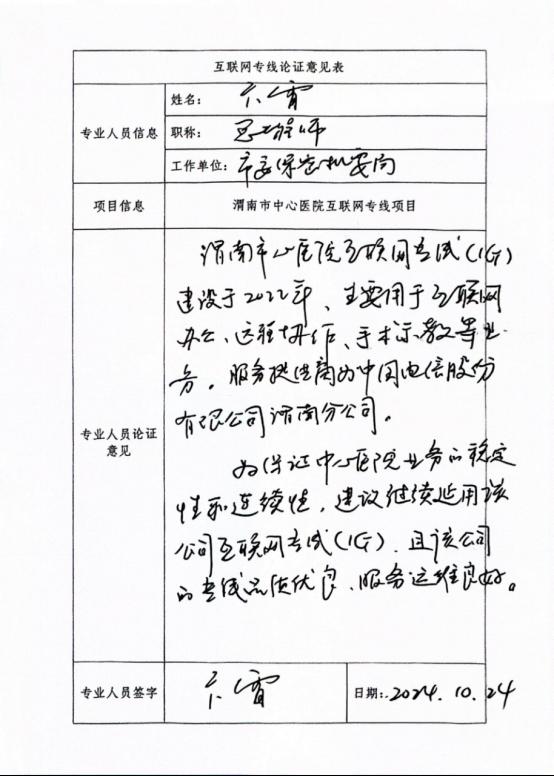 互联网专线论证意见表
专业人员信息
姓名：
职称：工程师
工作单位：市委保密机要局
项目信息
渭南市中心医院互联网专线项目
专业人员论证
意见
渭南市中心医院互联网专线(1G)
建设于2022年、主要用于互联网
办公、远程协作、手术示教等业
务。服务提供商为中国电信股份
有限公司渭南分公司。
为保证中心医院业务的稳定
性和连续性，建议继续延用该
公司互联网专线(1G)、且该公司
的专线品质优良、服务运维良好。
专业人员签字
日期：2024.10.24